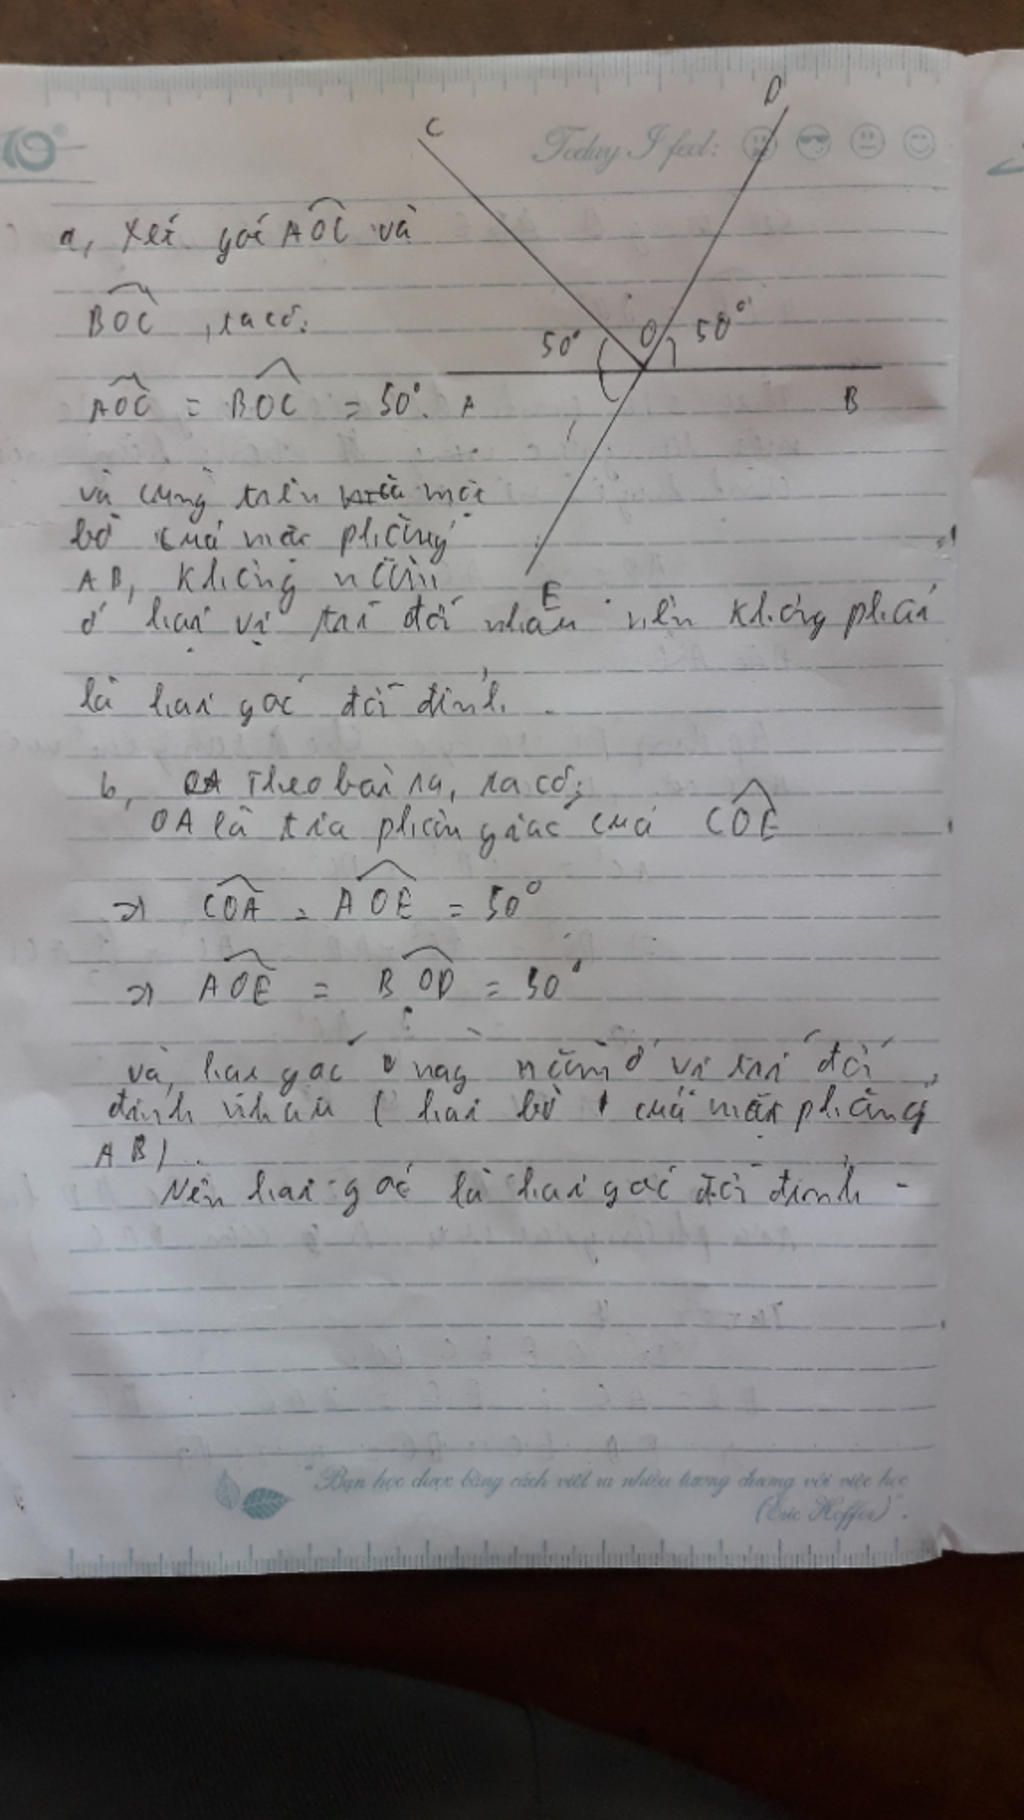 C
D
Today I feel:
a, Xét góc AOC và
BOC, ta có:
50°
O
50°
AOC = BOC = 50°.
A
B
và cùng trên một
bờ của mặt phẳng
AB, không nằm
E
ở hai vị trí đối nhau nên không phải
là hai góc đối đỉnh.
b, Theo bài ra, ta có:
OA là tia phân giác của COE
=> COA = AOE = 50°
=> AOE = BOD = 50°
và, hai góc này nằm ở vị trí đối
đỉnh nhau (hai bờ của mặt phẳng
AB).
Nên hai góc là hai góc đối đỉnh -
"Bạn học được bằng cách viết ra nhiều tương đương với việc học
(Eric Hoffer)".